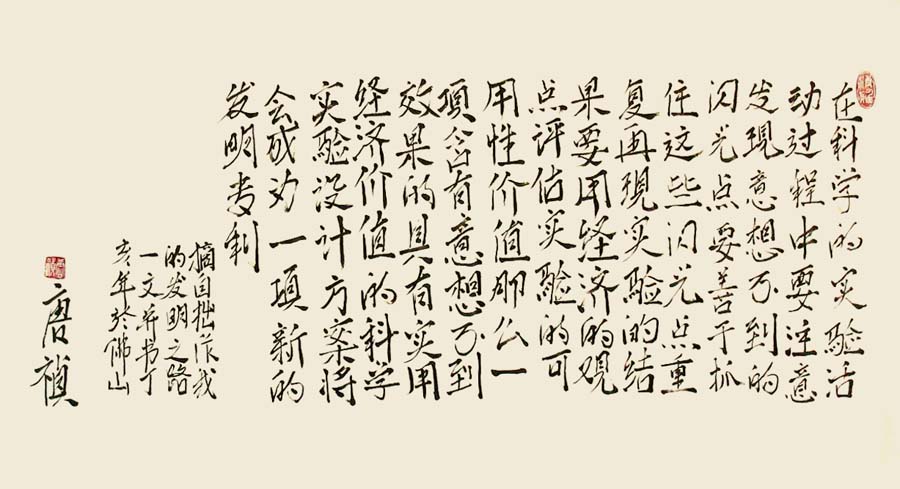 在科学的实验活
动过程中要注意
发現意想不到的
闪光点要善于抓
住这些闪光点重
复再現实验的结
果要用经济的观
点评估实验的可
用性价值那么一
項含有意想不到
效果的具有实用
经济价值的科学
实验设计方案将
会成为一項新的
发明专利
摘自拙作我
的发明之路
一文并书丁
亥年於佛山
唐祯